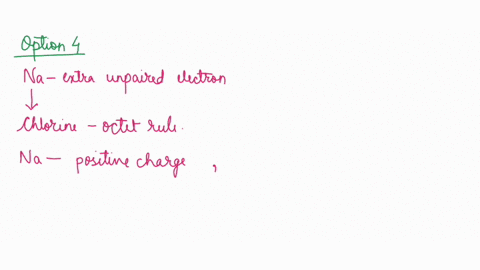 Option 4
Na - extra unpaired electron
↓
Chlorine - octet rule.
Na - positive charge ,